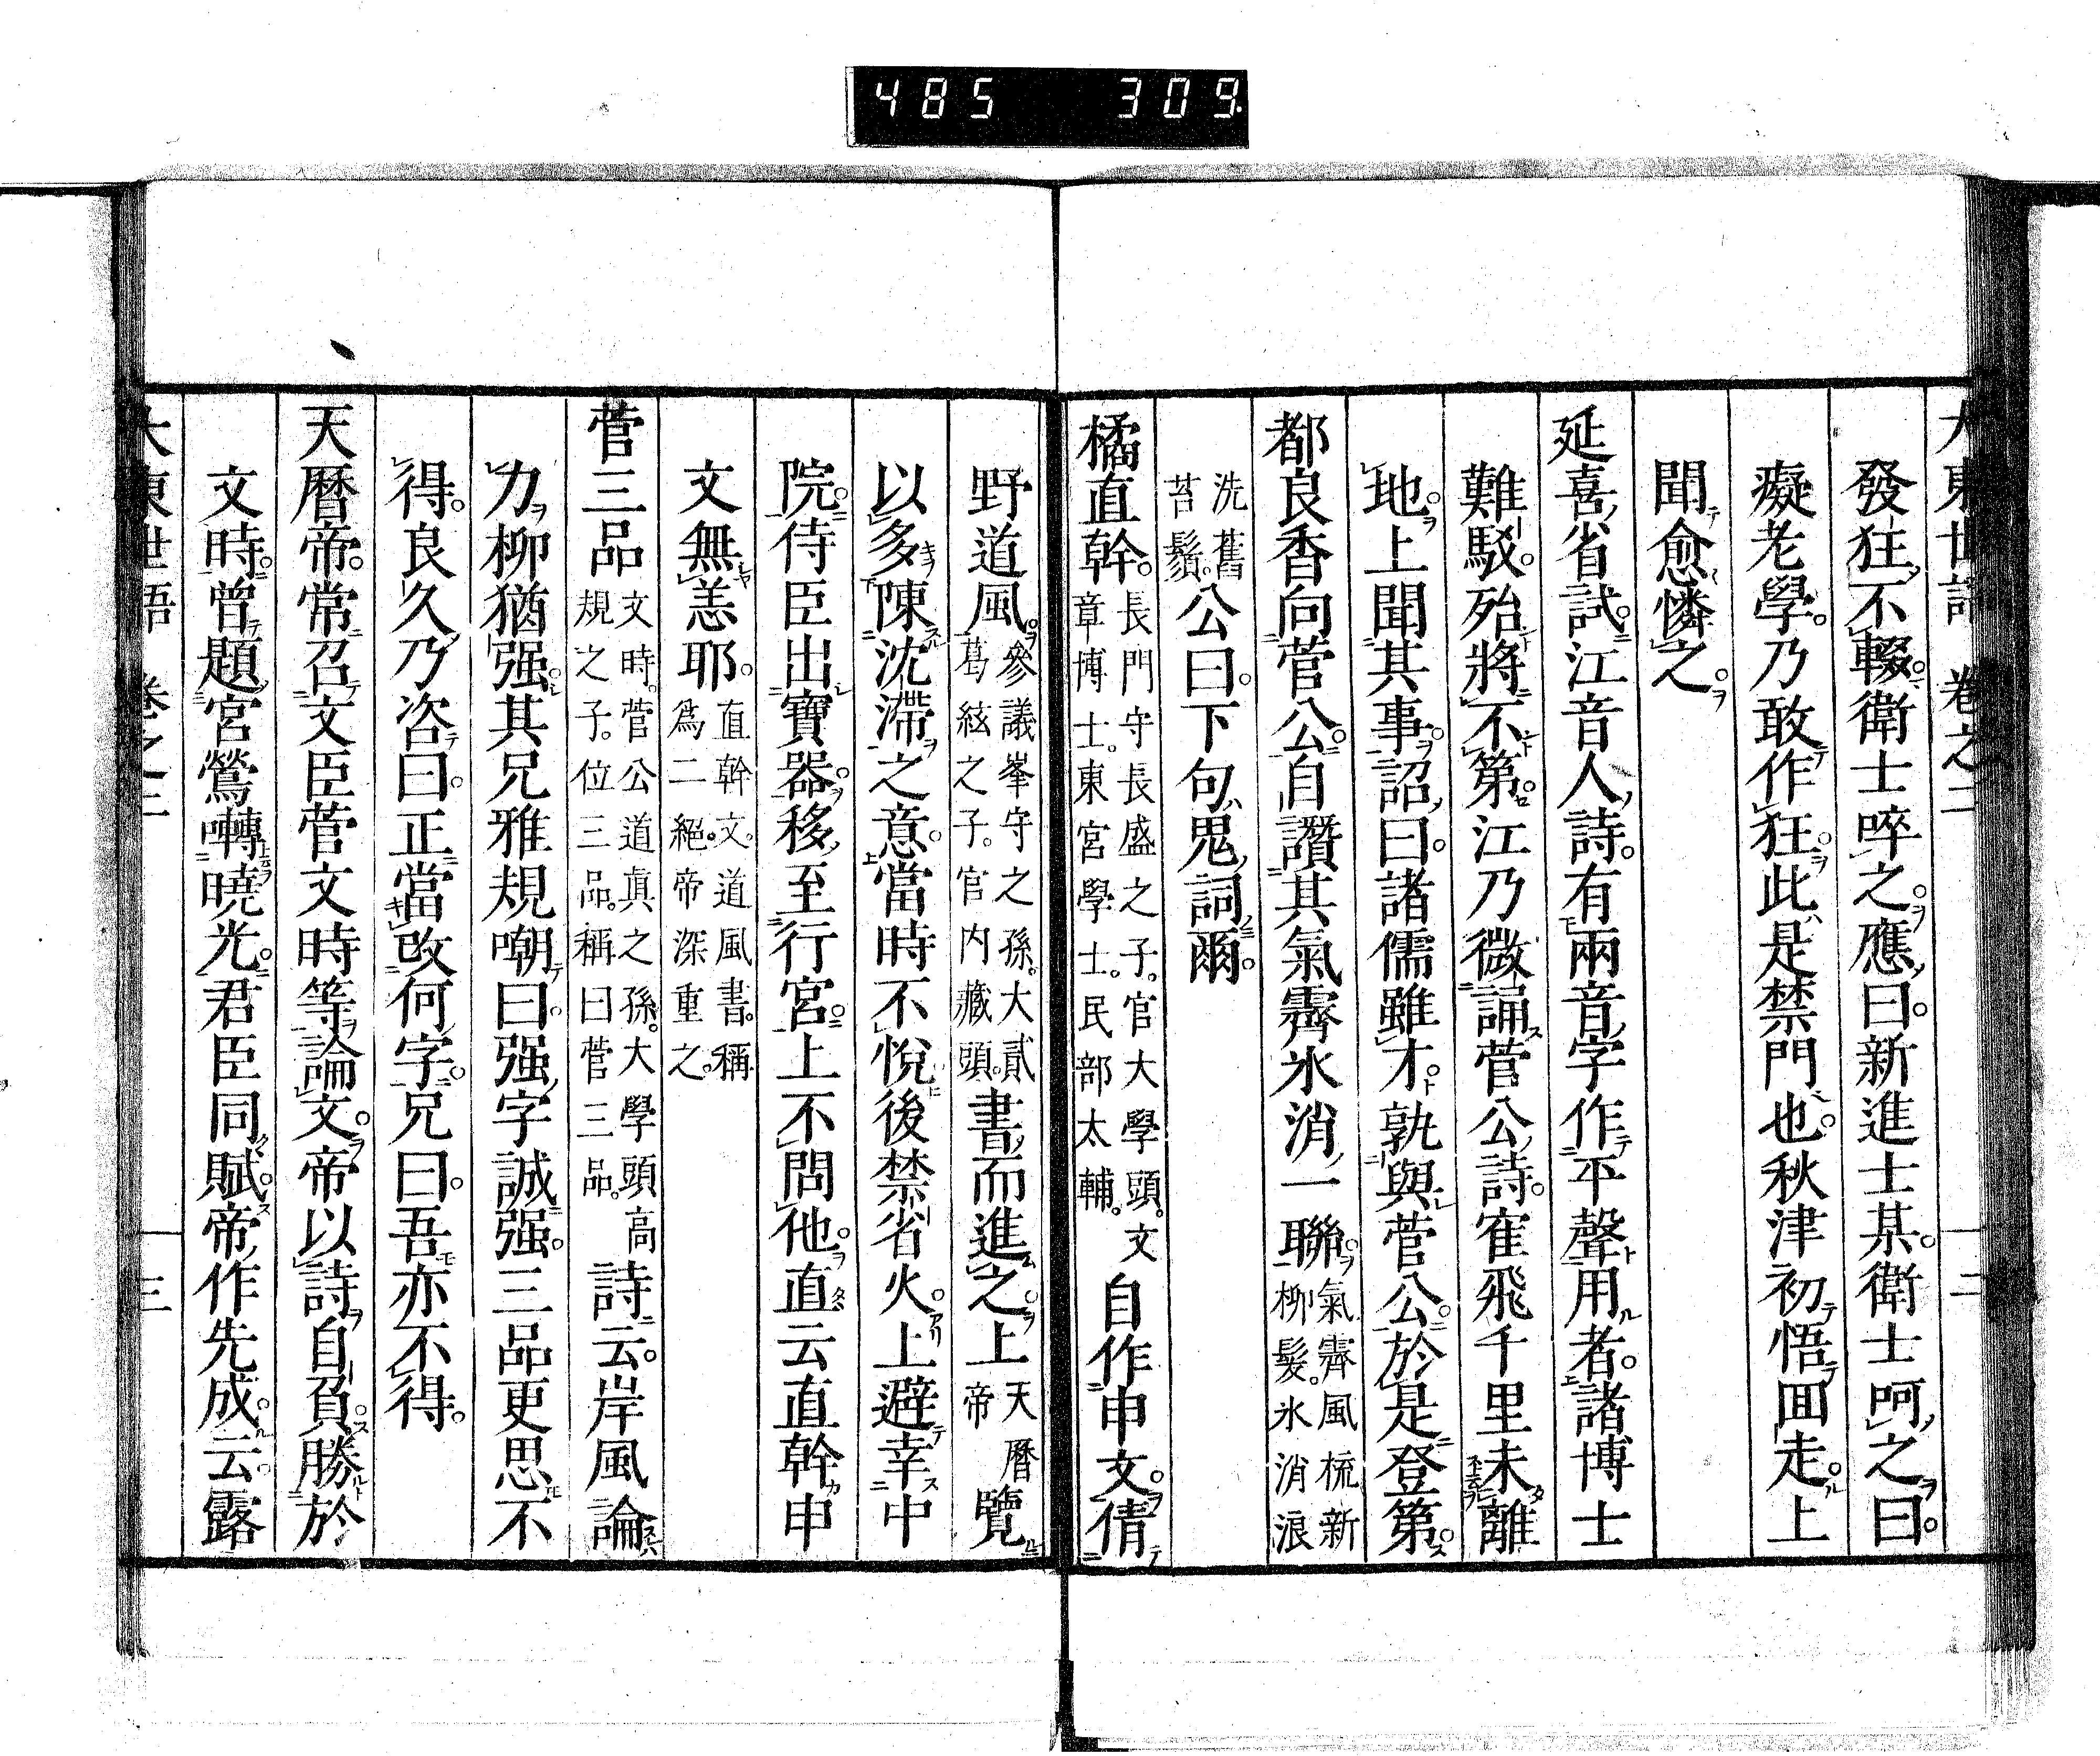 485 309
大東世語 卷之二 二
發狂不輟衛士啐之應曰新進士某衛士呵之曰
癡老學乃敢作狂此是禁門也秋津初悟囬走上
聞愈憐之
延喜省試江音人詩有兩音字作平聲用者諸博士
難駁殆將不第江乃微誦菅公詩隺飛千里未離
地上聞其事詔曰諸儒雖才孰與菅公於是登第
都良香向菅公自讚其氣霽氷消一聯氣霽風梳新柳髮氷消浪
洗舊苔鬚公曰下句鬼詞爾
橘直幹長門守長盛之子官大學頭文章博士東宮學士民部太輔自作申文倩
野道風參議峯守之孫大貳葛絃之子官内藏頭書而進之上天曆帝覽
以多陳沈滯之意當時不悅後禁省火上避幸中
院侍臣出寶器移至行宮上不問他直云直幹申
文無恙耶直幹文道風書稱爲二絕帝深重之
菅三品文時菅公道眞之孫大學頭高規之子位三品稱曰菅三品詩云岸風論
力柳猶强其兄雅規嘲曰强字誠强三品更思不
得良久乃咨曰正當改何字兄曰吾亦不得
天曆帝常召文臣菅文時等論文帝以詩自負勝於
文時曾題宮鶯囀曉光君臣同賦帝作先成云露
大東世語 卷之二 三